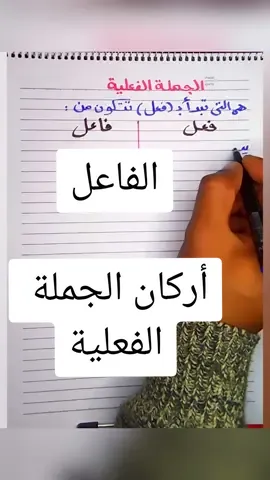 الجملة الفعلية
هي التي تبدأ بـ (فعل) تتكون من :
فعل فاعل
الفاعل
أركان الجملة
الفعلية